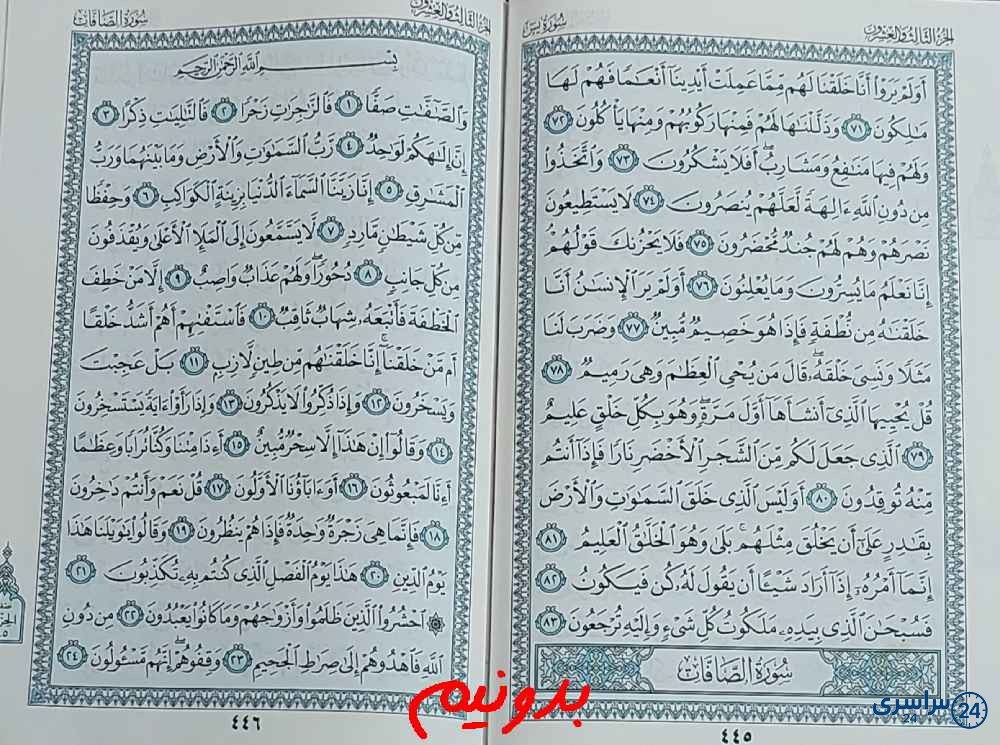 الجزء الثالث والعشرون
سورة يس
أَوَلَمْ يَرَوْا۟ أَنَّا خَلَقْنَا لَهُم مِّمَّا عَمِلَتْ أَيْدِينَآ أَنْعَـٰمًا فَهُمْ لَهَا
مَـٰلِكُونَ ٧١ وَذَلَّلْنَـٰهَا لَهُمْ فَمِنْهَا رَكُوبُهُمْ وَمِنْهَا يَأْكُلُونَ ٧٢
وَلَهُمْ فِيهَا مَنَـٰفِعُ وَمَشَارِبُ ۖ أَفَلَا يَشْكُرُونَ ٧٣ وَٱتَّخَذُوا۟
مِن دُونِ ٱللَّهِ ءَالِهَةً لَّعَلَّهُمْ يُنصَرُونَ ٧٤ لَا يَسْتَطِيعُونَ
نَصْرَهُمْ وَهُمْ لَهُمْ جُندٌ مُّحْضَرُونَ ٧٥ فَلَا يَحْزُنكَ قَوْلُهُمْ ۘ
إِنَّا نَعْلَمُ مَا يُسِرُّونَ وَمَا يُعْلِنُونَ ٧٦ أَوَلَمْ يَرَ ٱلْإِنسَـٰنُ أَنَّا
خَلَقْنَـٰهُ مِن نُّطْفَةٍ فَإِذَا هُوَ خَصِيمٌ مُّبِينٌ ٧٧ وَضَرَبَ لَنَا
مَثَلًا وَنَسِىَ خَلْقَهُۥ ۖ قَالَ مَن يُحْىِ ٱلْعِظَـٰمَ وَهِىَ رَمِيمٌ ٧٨
قُلْ يُحْيِيهَا ٱلَّذِىٓ أَنشَأَهَآ أَوَّلَ مَرَّةٍ ۖ وَهُوَ بِكُلِّ خَلْقٍ عَلِيمٌ
٧٩ ٱلَّذِى جَعَلَ لَكُم مِّنَ ٱلشَّجَرِ ٱلْأَخْضَرِ نَارًا فَإِذَآ أَنتُم
مِّنْهُ تُوقِدُونَ ٨٠ أَوَلَيْسَ ٱلَّذِى خَلَقَ ٱلسَّمَـٰوَٰتِ وَٱلْأَرْضَ
بِقَـٰدِرٍ عَلَىٰٓ أَن يَخْلُقَ مِثْلَهُم ۚ بَلَىٰ وَهُوَ ٱلْخَلَّـٰقُ ٱلْعَلِيمُ ٨١
إِنَّمَآ أَمْرُهُۥٓ إِذَآ أَرَادَ شَيْـًٔا أَن يَقُولَ لَهُۥ كُن فَيَكُونُ ٨٢
فَسُبْحَـٰنَ ٱلَّذِى بِيَدِهِۦ مَلَكُوتُ كُلِّ شَىْءٍ وَإِلَيْهِ تُرْجَعُونَ ٨٣
سورة الصافات
٤٤٥
الجزء الثالث والعشرون
سورة الصافات
بِسْمِ ٱللَّهِ ٱلرَّحْمَـٰنِ ٱلرَّحِيمِ
وَٱلصَّـٰٓفَّـٰتِ صَفًّا ١ فَٱلزَّٰجِرَٰتِ زَجْرًا ٢ فَٱلتَّـٰلِيَـٰتِ ذِكْرًا ٣
إِنَّ إِلَـٰهَكُمْ لَوَٰحِدٌ ٤ رَّبُّ ٱلسَّمَـٰوَٰتِ وَٱلْأَرْضِ وَمَا بَيْنَهُمَا وَرَبُّ
ٱلْمَشَـٰرِقِ ٥ إِنَّا زَيَّنَّا ٱلسَّمَآءَ ٱلدُّنْيَا بِزِينَةٍ ٱلْكَوَاكِبِ ٦ وَحِفْظًا
مِّن كُلِّ شَيْطَـٰنٍ مَّارِدٍ ٧ لَّا يَسَّمَّعُونَ إِلَى ٱلْمَلَإِ ٱلْأَعْلَىٰ وَيُقْذَفُونَ
مِن كُلِّ جَانِبٍ ٨ دُحُورًا ۖ وَلَهُمْ عَذَابٌ وَاصِبٌ ٩ إِلَّا مَنْ خَطِفَ
ٱلْخَطْفَةَ فَأَتْبَعَهُۥ شِهَابٌ ثَاقِبٌ ١٠ فَٱسْتَفْتِهِمْ أَهُمْ أَشَدُّ خَلْقًا
أَم مَّنْ خَلَقْنَآ ۚ إِنَّا خَلَقْنَـٰهُم مِّن طِينٍ لَّازِبٍ ١١ بَلْ عَجِبْتَ
وَيَسْخَرُونَ ١٢ وَإِذَا ذُكِّرُوا۟ لَا يَذْكُرُونَ ١٣ وَإِذَا رَأَوْا۟ ءَايَةً يَسْتَسْخِرُونَ
١٤ وَقَالُوٓا۟ إِنْ هَـٰذَآ إِلَّا سِحْرٌ مُّبِينٌ ١٥ أَءِذَا مِتْنَا وَكُنَّا تُرَابًا وَعِظَـٰمًا
أَءِنَّا لَمَبْعُوثُونَ ١٦ أَوَءَابَآؤُنَا ٱلْأَوَّلُونَ ١٧ قُلْ نَعَمْ وَأَنتُمْ دَٰخِرُونَ
١٨ فَإِنَّمَا هِىَ زَجْرَةٌ وَٰحِدَةٌ فَإِذَا هُمْ يَنظُرُونَ ١٩ وَقَالُوا۟ يَـٰوَيْلَنَا هَـٰذَا
يَوْمُ ٱلدِّينِ ٢٠ هَـٰذَا يَوْمُ ٱلْفَصْلِ ٱلَّذِى كُنتُم بِهِۦ تُكَذِّبُونَ ٢١
۞ ٱحْشُرُوا۟ ٱلَّذِينَ ظَلَمُوا۟ وَأَزْوَٰجَهُمْ وَمَا كَانُوا۟ يَعْبُدُونَ ٢٢ مِن دُونِ
ٱللَّهِ فَٱهْدُوهُمْ إِلَىٰ صِرَٰطِ ٱلْجَحِيمِ ٢٣ وَقِفُوهُمْ ۖ إِنَّهُم مَّسْـُٔولُونَ ٢٤
٤٤٦
بدونیم
سراسری
24
24